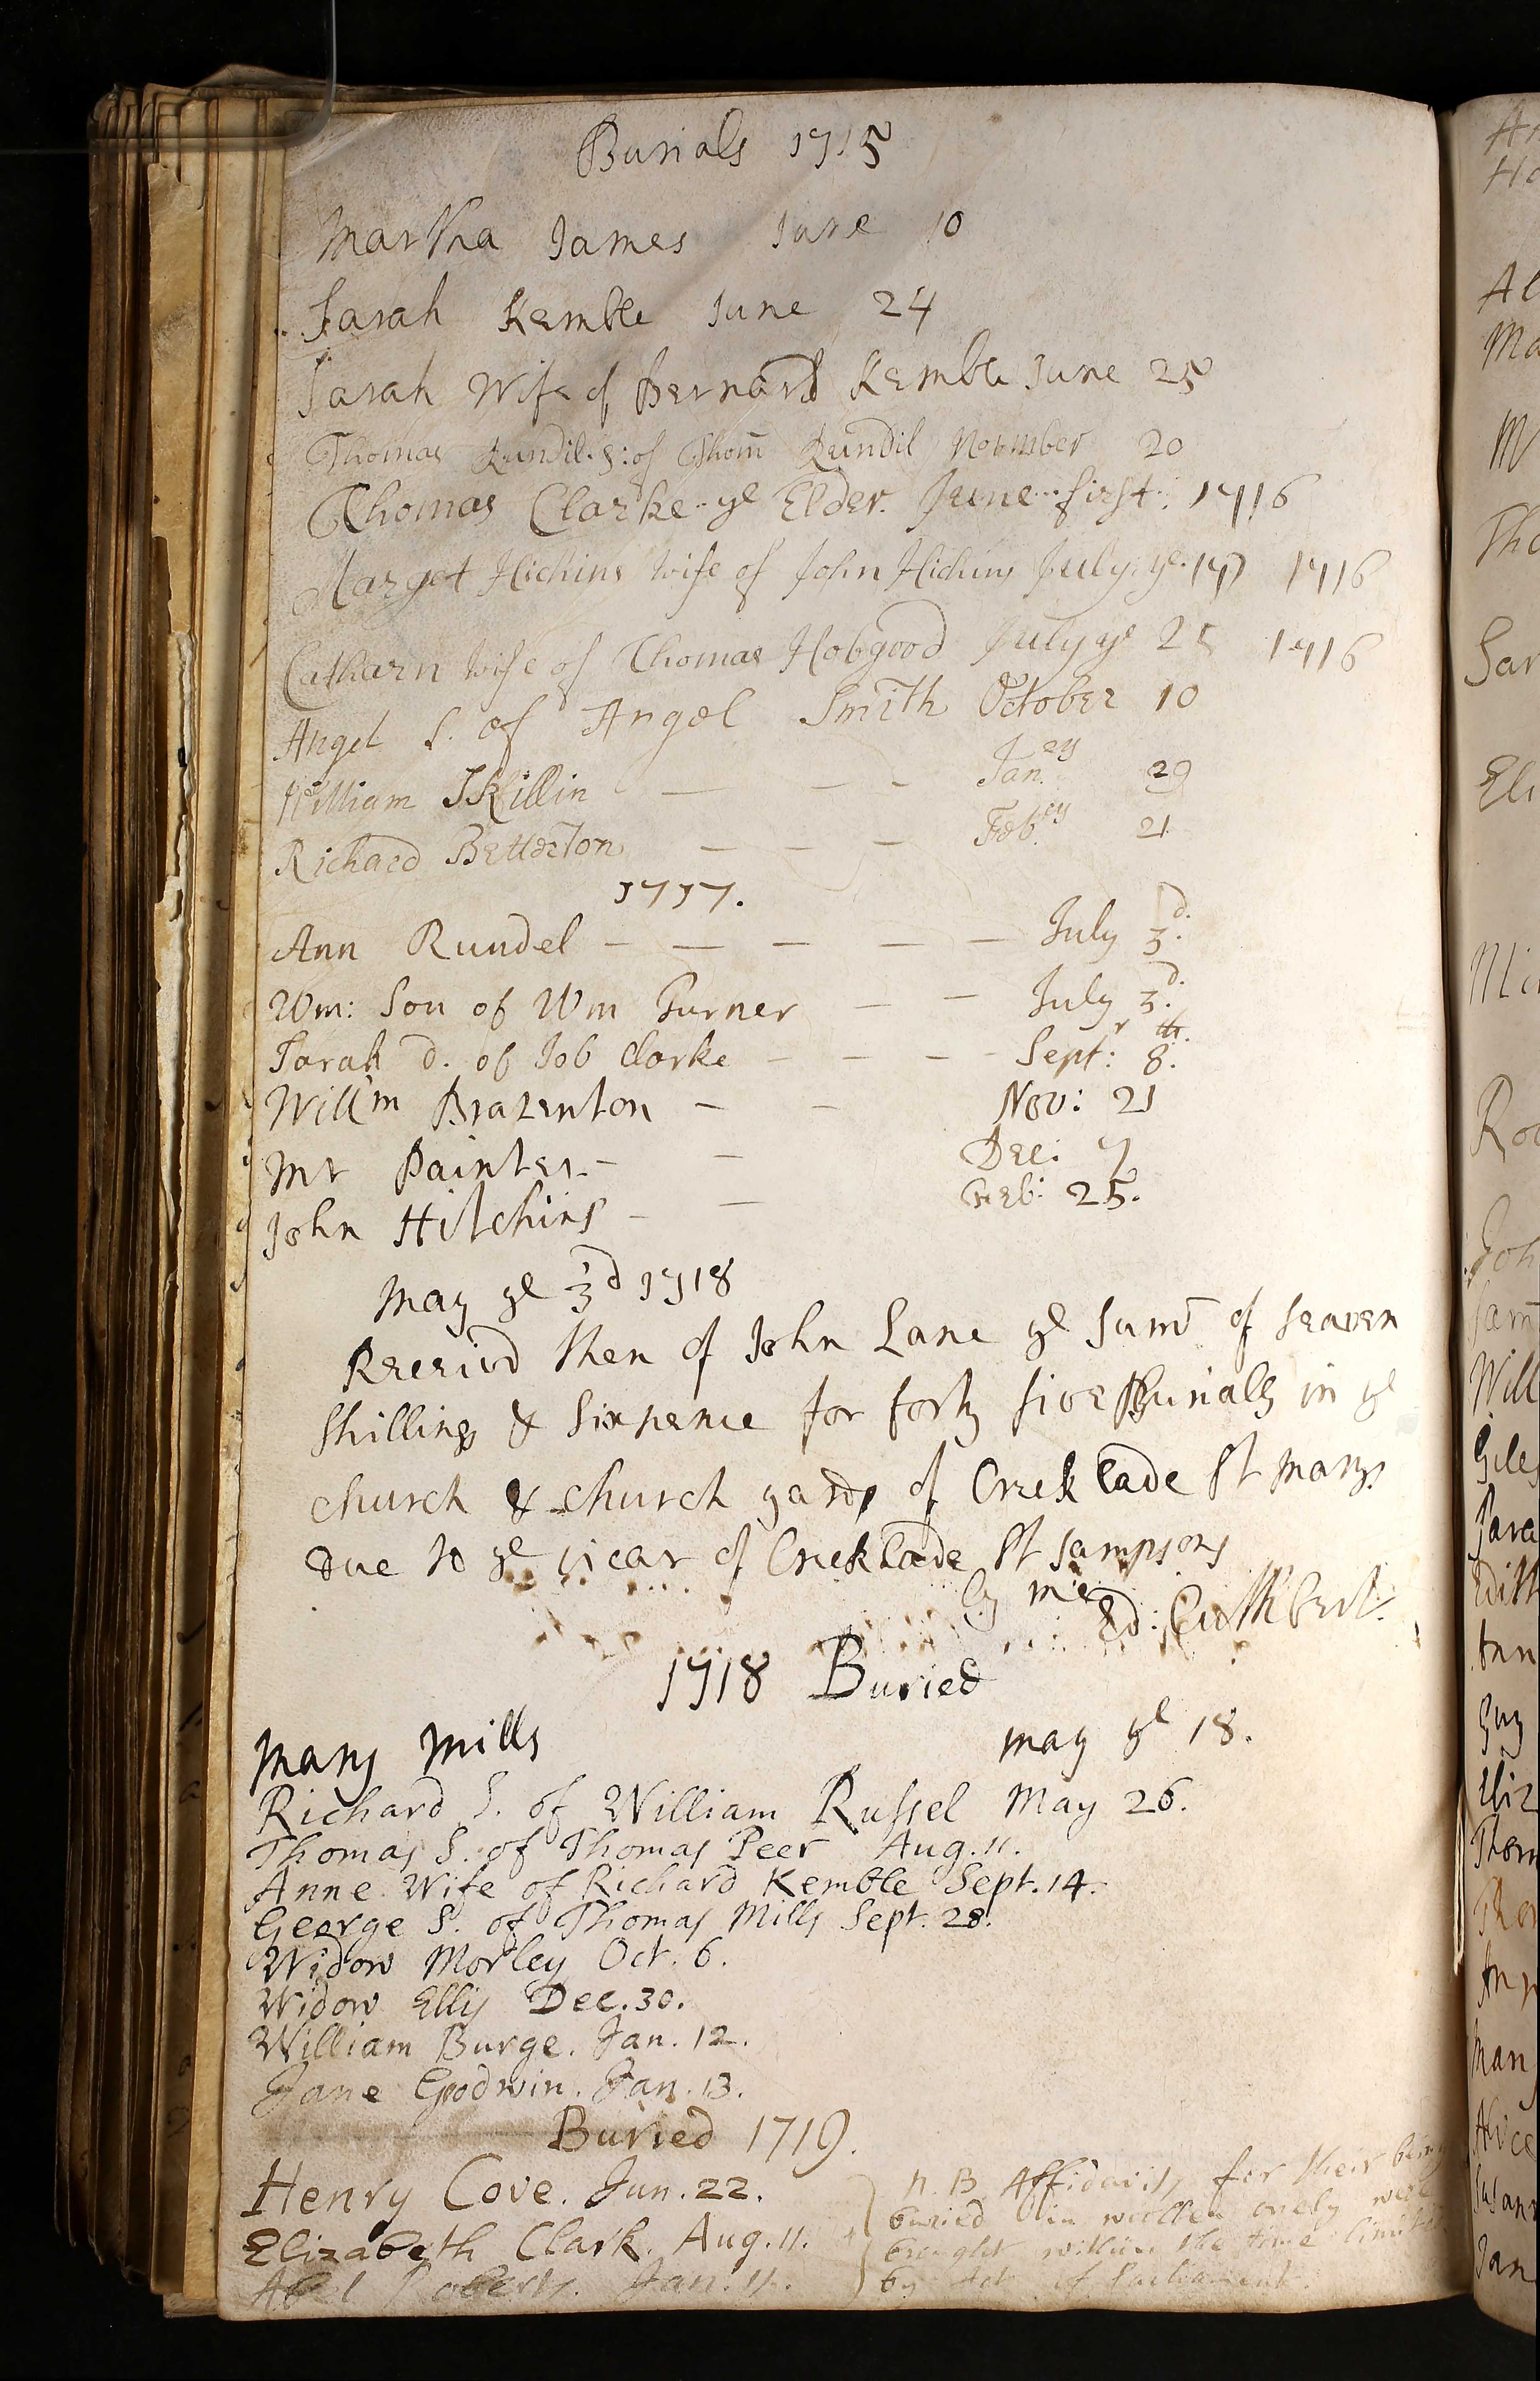 Burials 1715
Martha James June 10
Sarah Kemble June 24
Sarah Wife of Bernard Kemble June 25
Thomas Rundil. S: of Thom Rundil November 20
Thomas Clarke ye Elder. June first. 1716
Marget Hichins wife of John Hichins July ye 17 1716
Catharn wife of Thomas Hobgood July ye 25 1716
Angel S. of Angel Smith October 10
William Skillin — — — Jan.ey 29
Richard Betterton — — — Feb.ey 21
1717.
Ann Rundel — — — — — July 3d.
Wm: Son of Wm Turner — — July 3d.
Sarah d. of Job Clarke — — — - Septr: 8th.
Willm Brazenton — — Nov: 21
Mr Painter — — Dec: 7
John Hitchins — — Feb: 25.
May ye 3d 1718
Received then of John Lane ye Sum of Seaven
Shillings & Sixpence for forty five Burialls in ye
church & church yards of Cricklade St Marys
due to ye vicar of Cricklade St Sampsons
by me Ed: Cuthbert.
1718 Buried
Mary Mills May ye 18.
Richard S. of William Russel May 26.
Thomas S. of Thomas Peer Aug. 11.
Anne Wife of Richard Kemble Sept. 14.
George S. of Thomas Mills Sept. 28.
Widow Morley Oct. 6.
Widow Ellis Dec. 30.
William Burge. Jan. 12.
Jane Godwin. Jan. 13.
Buried 1719.
Henry Cove. Jun. 22.
Elizabeth Clark. Aug. 11.
Abel Roberts. Jan. 11.
N. B. Affidavits for their being
buried in wollen onely were
brought within the time limited
by Act of Parliament.